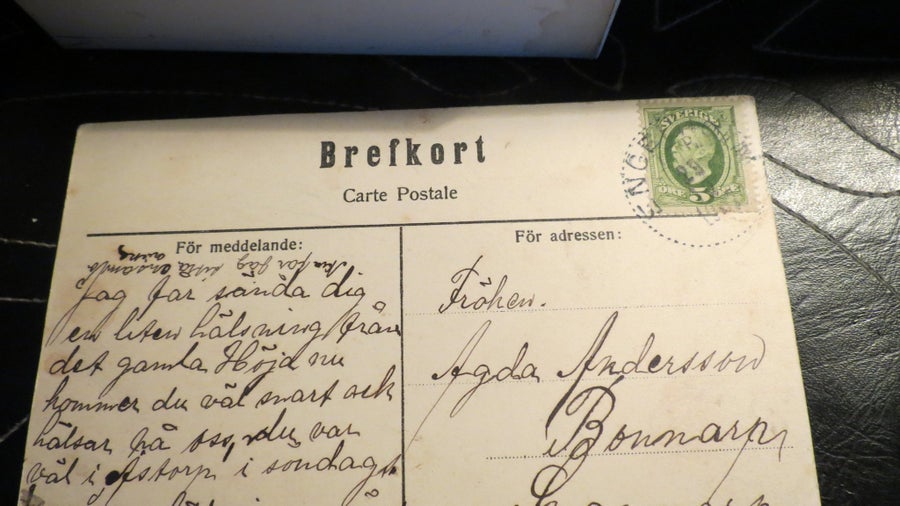 Brefkort
Carte Postale
SVERIGE
ÖRE 5 ÖRE
ENGE
För meddelande:
Jag får sända dig
en liten hälsning från
det gamla Höja nu
kommer du väl snart och
hälsar på oss, du var
väl i Åstorp i söndags
För adressen:
Fröken.
Agda Andersson
Bonnarp